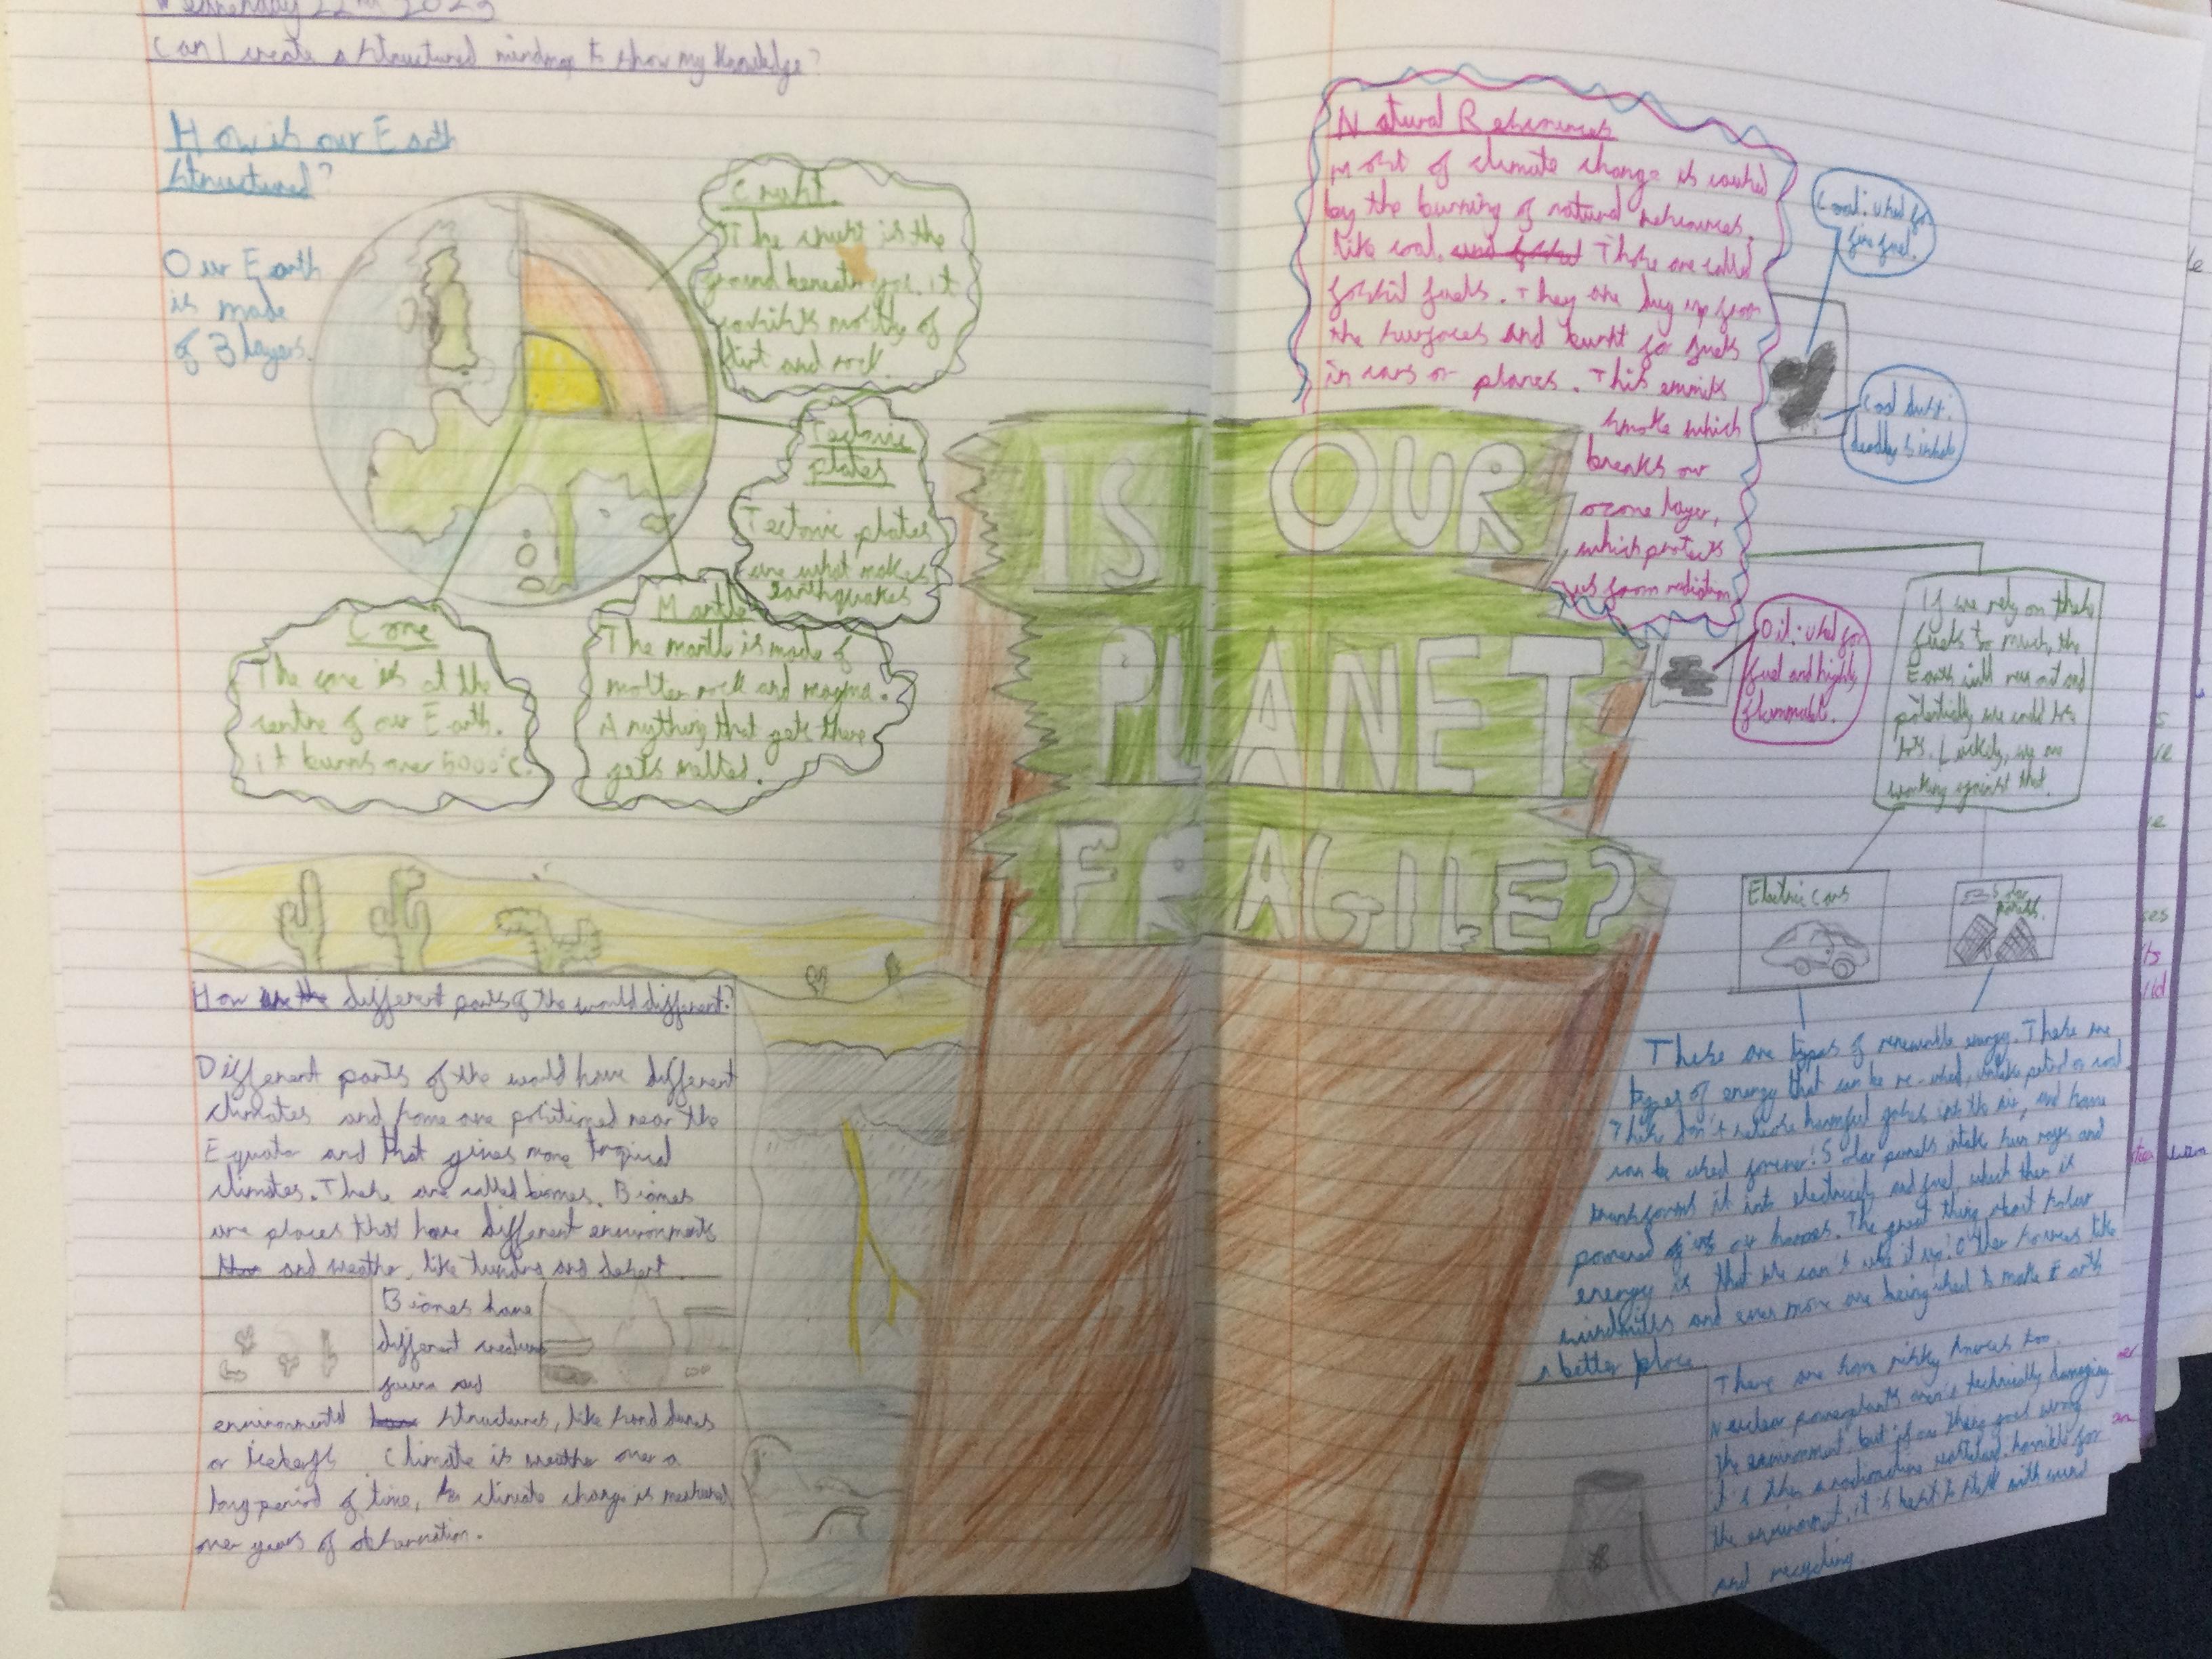 Wednesday 22nd 2023
Can I create a structured mindmap to show my knowledge?
How is our Earth
structured?
Our Earth
is made
of 3 layers.
Crust.
The crust is the
ground beneath you. it
consists mostly of
dirt and rock.
Tectonic
plates
Tectonic plates
are what makes
earthquakes
Core
The core is at the
centre of our Earth.
it burns over 5000°c.
Mantle
The mantle is made of
molten rock and magma.
Anything that gets there
gets melted.
IS OUR
PLANET
FRAGILE?
How are the different parts of the world different?
Different parts of the world have different
climates and some are positioned near the
Equator and that gives more tropical
climates. These are called biomes. Biomes
are places that have different environments
and weather, like tundra and desert.
Biomes have
different
and
environmental structures, like sand dunes
or
Climate is weather over a
long period of time, so climate change is measured
over years of observation.
Natural Resources
most of climate change is caused
by the burning of natural resources,
like coal. These are called
fossil fuels. They are dug up from
the surfaces and burnt for fuels
in cars or planes. This emmits
smoke which
breaks our
ozone layer,
which protects
us from radiation
Coal: used for
fire fuel.
Coal dust:
deadly
Oil: used for
fuel and highly
flammable.
If we rely on these
fuels to much, the
Earth will run out and
potentially we could
Luckily, we are
working against that.
Electric cars
Solar
panels.
These are types of renewable energy. These are
types of energy that can be re-used, unlike petrol or coal.
These don't release harmful gases into the air, and some
can be used forever! Solar panels intake sun rays and
transforms it into electricity and fuel which then is
powered our homes. The great thing about solar
energy is that we can't use it up! Other sources like
windmills and even more are being used to make Earth
a better place.
There are some risky sources too.
Nuclear powerplants aren't technically damaging
the environment, but if one thing goes wrong
it is then a radioactive wasteland. horrible for
the enviroment. it's best to stick with wind
and recycling.